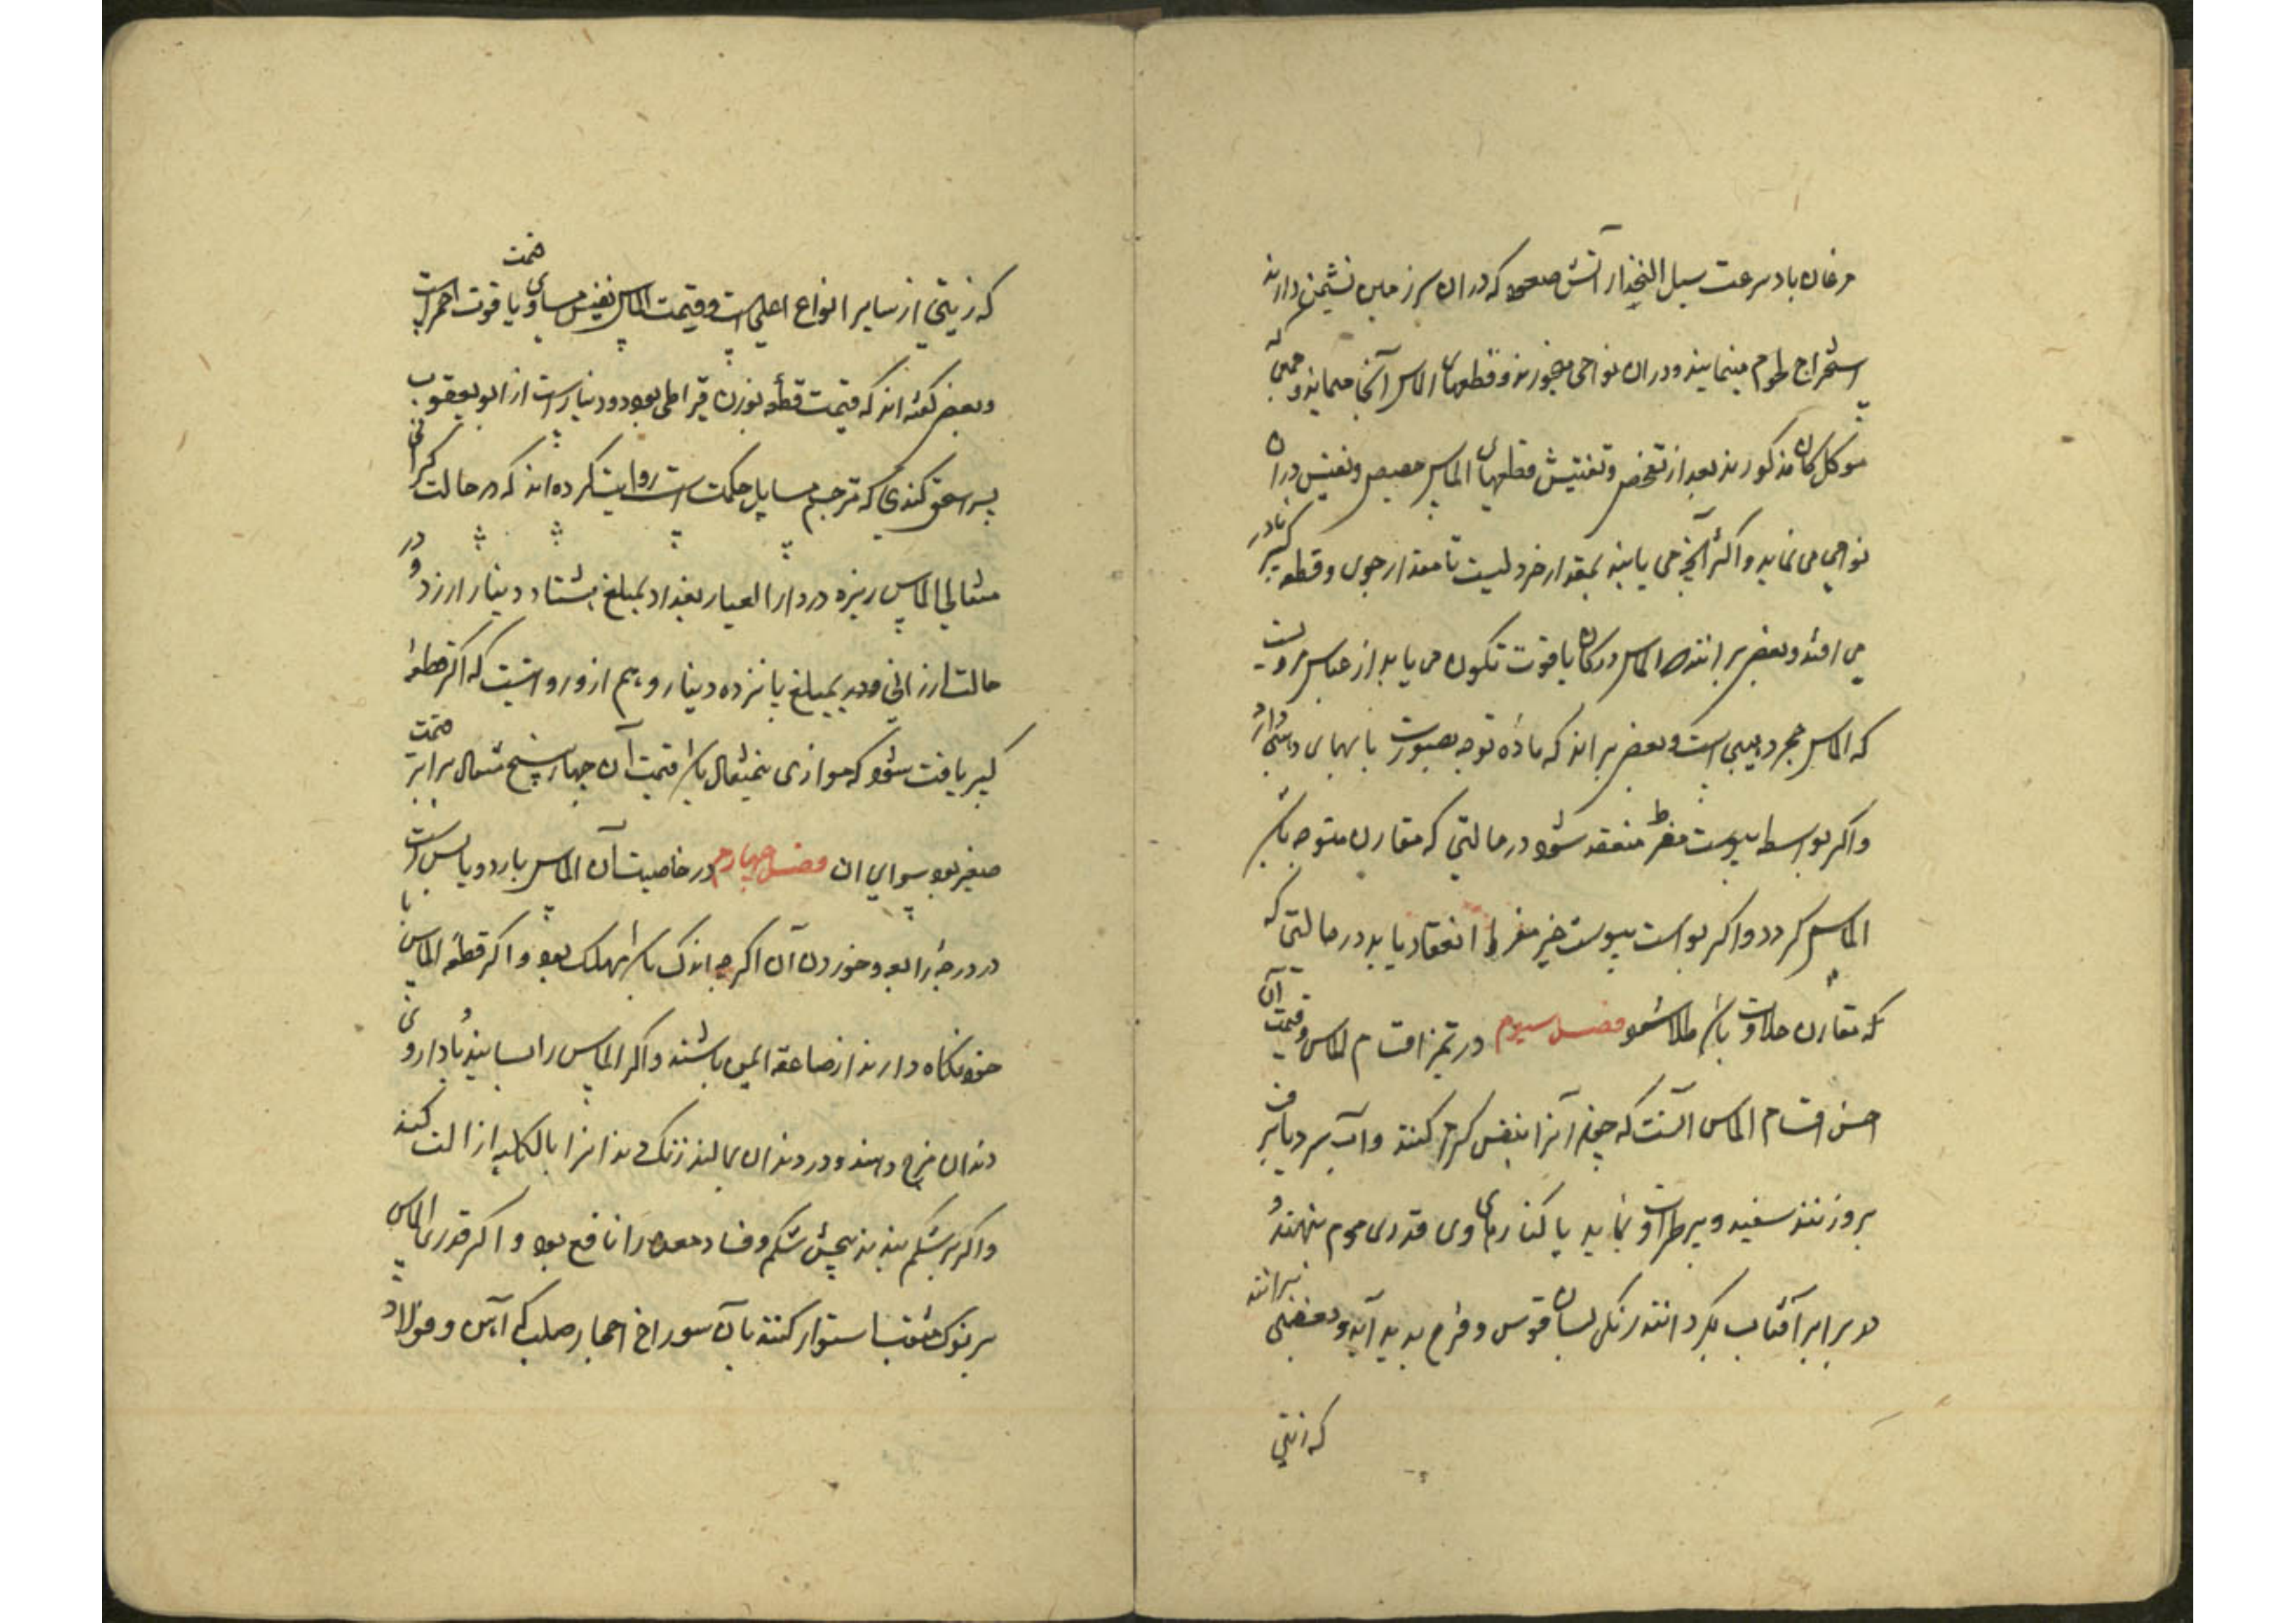 مرغان باد سرعت سیل انحدار آتش صعود که دران سرزمین نشیمن دارند
استخراج طعوم مینمایند ودران نواحی میخورند وقطعهای الماس آنجا میماند و جمعی که
موکل کان مذکورند بعد از تفحص وتفتیش قطهای الماس دران
نواحی می نماید واکثر آنچه می یابند بمقدار خردلیست تا مقدار جوی وقطعه کبیر نادر
می افتد وبعضی برانند که الماس در کان یاقوت تکون می یابد از عباس مرویست
که الماس حجر ذهبی است وبعضی برانند که ماده توجه بصورت
واکر بواسطه یبوست مفرط منعقد شود در حالتی که مقارن متوجه باشد
الماس کردد واکر بواسطه یبوست غیر مفرط انعقاد یابد در حالتی که
که مقارن حلاوت باشد طلا شود فصل سیوم در تمیز اقسام الماس وقیمت آن
احسن اقسام الماس آنست که چون آنرا بنفس کرم کنند وآب سرد بران
بروزنند سفید وبیرطراوت نماید یا کنارهای وی قدری موم نهند و
در برابر آفتاب بکردانند رنکی بسان قوس وقزح پدید آید وبعضی برانند
که زیتی
که زیتی از سایر انواع اعلی است وقیمت الماس نفیس مساوی قیمت یاقوت احمر است
وبعضی کفته اند که قیمت قطعه بوزن قیراطی بود دو دینارست از ابو یعقوب
پسر اسحق کندی که مترجم مسایل حکمت است روایت کرده اند که در حالت کرانی
مثقالی الماس ریزه در دار العیار بغداد بمبلغ هشتاد دینار ارزد و در
حالت ارزانی بمبلغ پانزده دینار وهم ازو روایتست که اکر قطعه
کبیر یافت شود که موازی نیمثقال باشد قیمت آن چهار پنج مثقال برابر قیمت
صغیر بود سوای ان فصل چهارم در خاصیت آن الماس بارد ویابس است
در درجه رابع وخوردن آن اکرچه اندک باشد مهلک بود واکر قطعه الماس با
خود نکاه دارند از صاعقه ایمن باشند واکر الماس را بسایند و با داروی
دندان مزج دهند ودر دندان بمالند زنک دندانرا بالکلیه ازالت کند
واکر بر شکم بندند پیچش شکم وفساد معده را نافع بود واکر قدری الماس
بر نوک مثقب استوار کنند بآن سوراخ احجار صلب کی آهن وفولاد